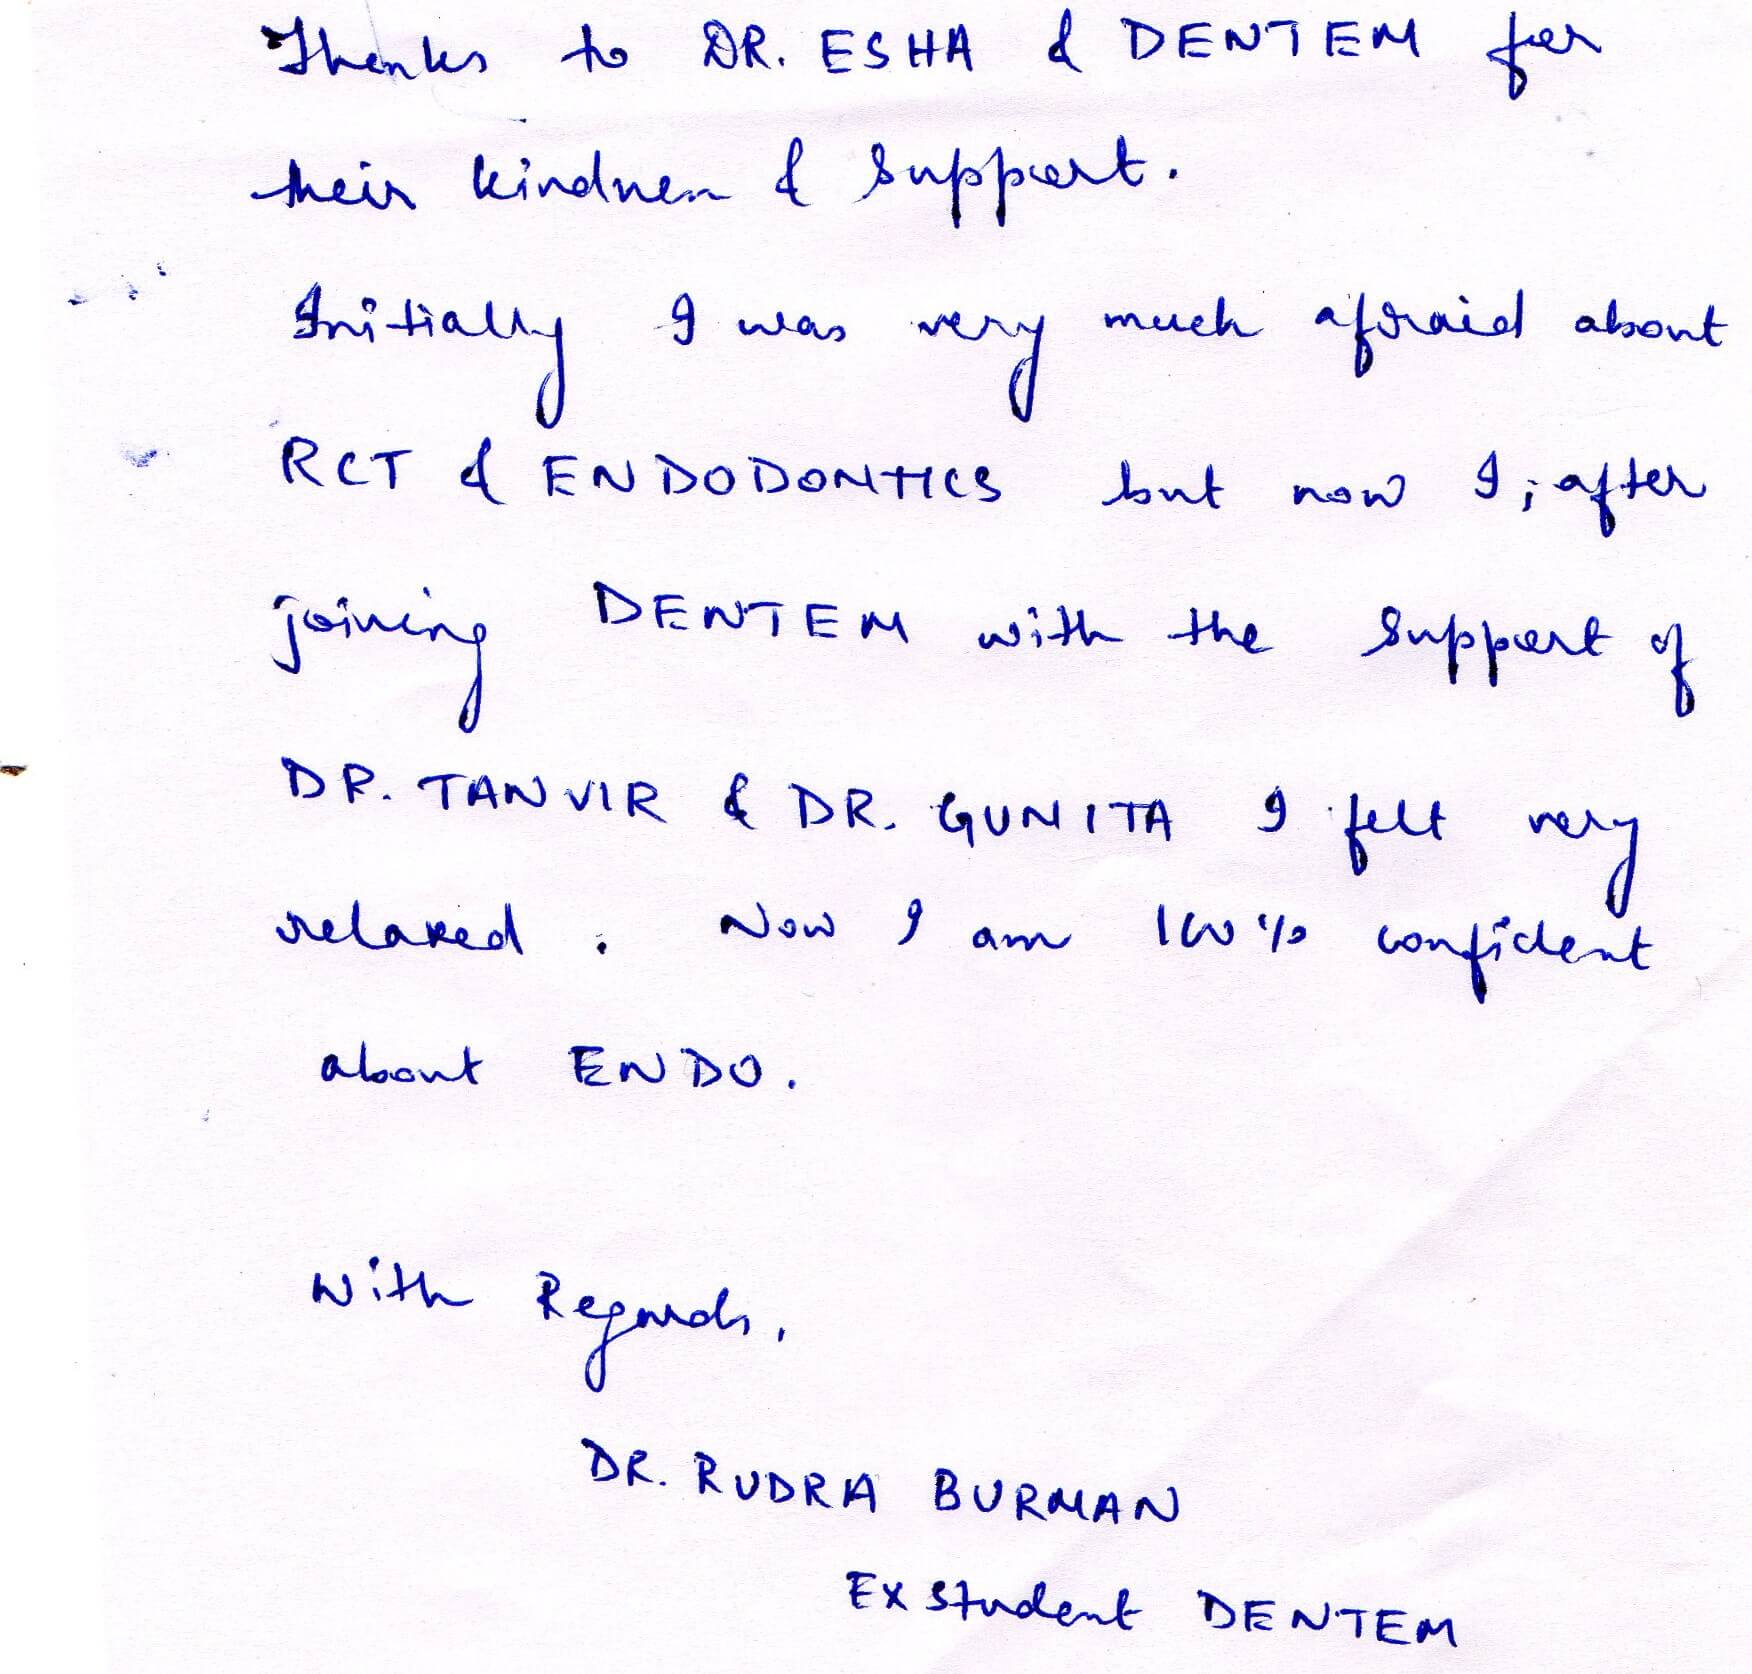 Thanks to DR. ESHA & DENTEM for
their kindness & Support.
Initially I was very much afraid about
RCT & ENDODONTICS but now I, after
joining DENTEM with the Support of
DR. TANVIR & DR. GUNITA I felt very
relaxed. Now I am 100% confident
about ENDO.
With Regards,
DR. RUDRA BURMAN
Ex Student DENTEM